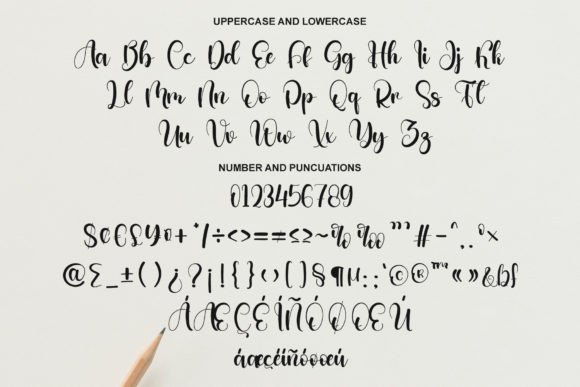 UPPERCASE AND LOWERCASE
Aa Bb Cc Dd Ee Ff Gg Hh Ii Jj Kk
Ll Mm Nn Oo Pp Qq Rr Ss Tt
Uu Vv Ww Xx Yy Zz
NUMBER AND PUNCUATIONS
0123456789
$¢€£¥¤+*/÷<>=≠≤≥~%‰"'#-^.,°×
@Σ_±()¿?¡!{}‹›[]§¶µ:;'©®™«»&bf
ÁÆÇÉÍÑÓØŒÚ
áæçéíñóøœú